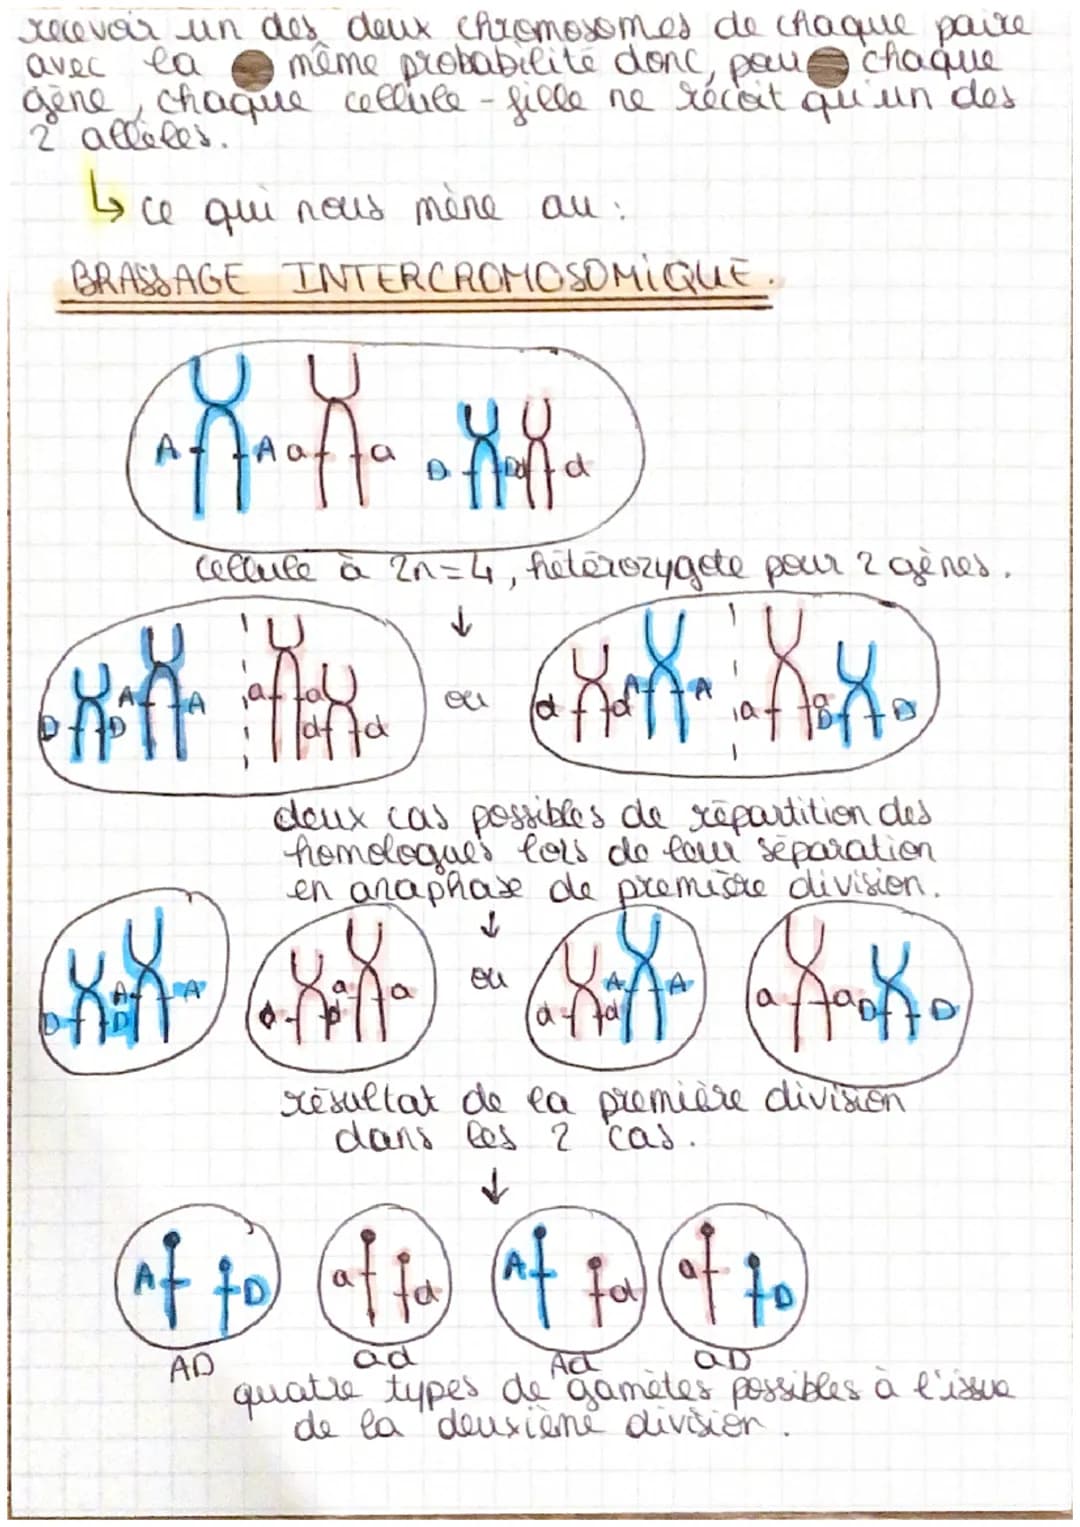 recevoir un des deux chromosomes de chaque paire
avec la même probabilité donc, pour chaque
gène, chaque cellule-fille ne récoit qu'un des
2 allèles.
↳ ce qui nous mène au :
BRASSAGE INTERCROMOSOMIQUE.
A A a a D D d d
cellule à 2n=4, hétérozygote pour 2 gènes.
↓
D D A A a a d d ou d d A A a a D D
deux cas possibles de répartition des
homologues lors de leur séparation
en anaphase de première division.
↓
D D A A d d a a ou d d A A a a D D
résultat de la première division
dans les 2 cas.
↓
A D a d A d a D
AD ad Ad aD
quatre types de gamètes possibles à l'issue
de la deuxième division.